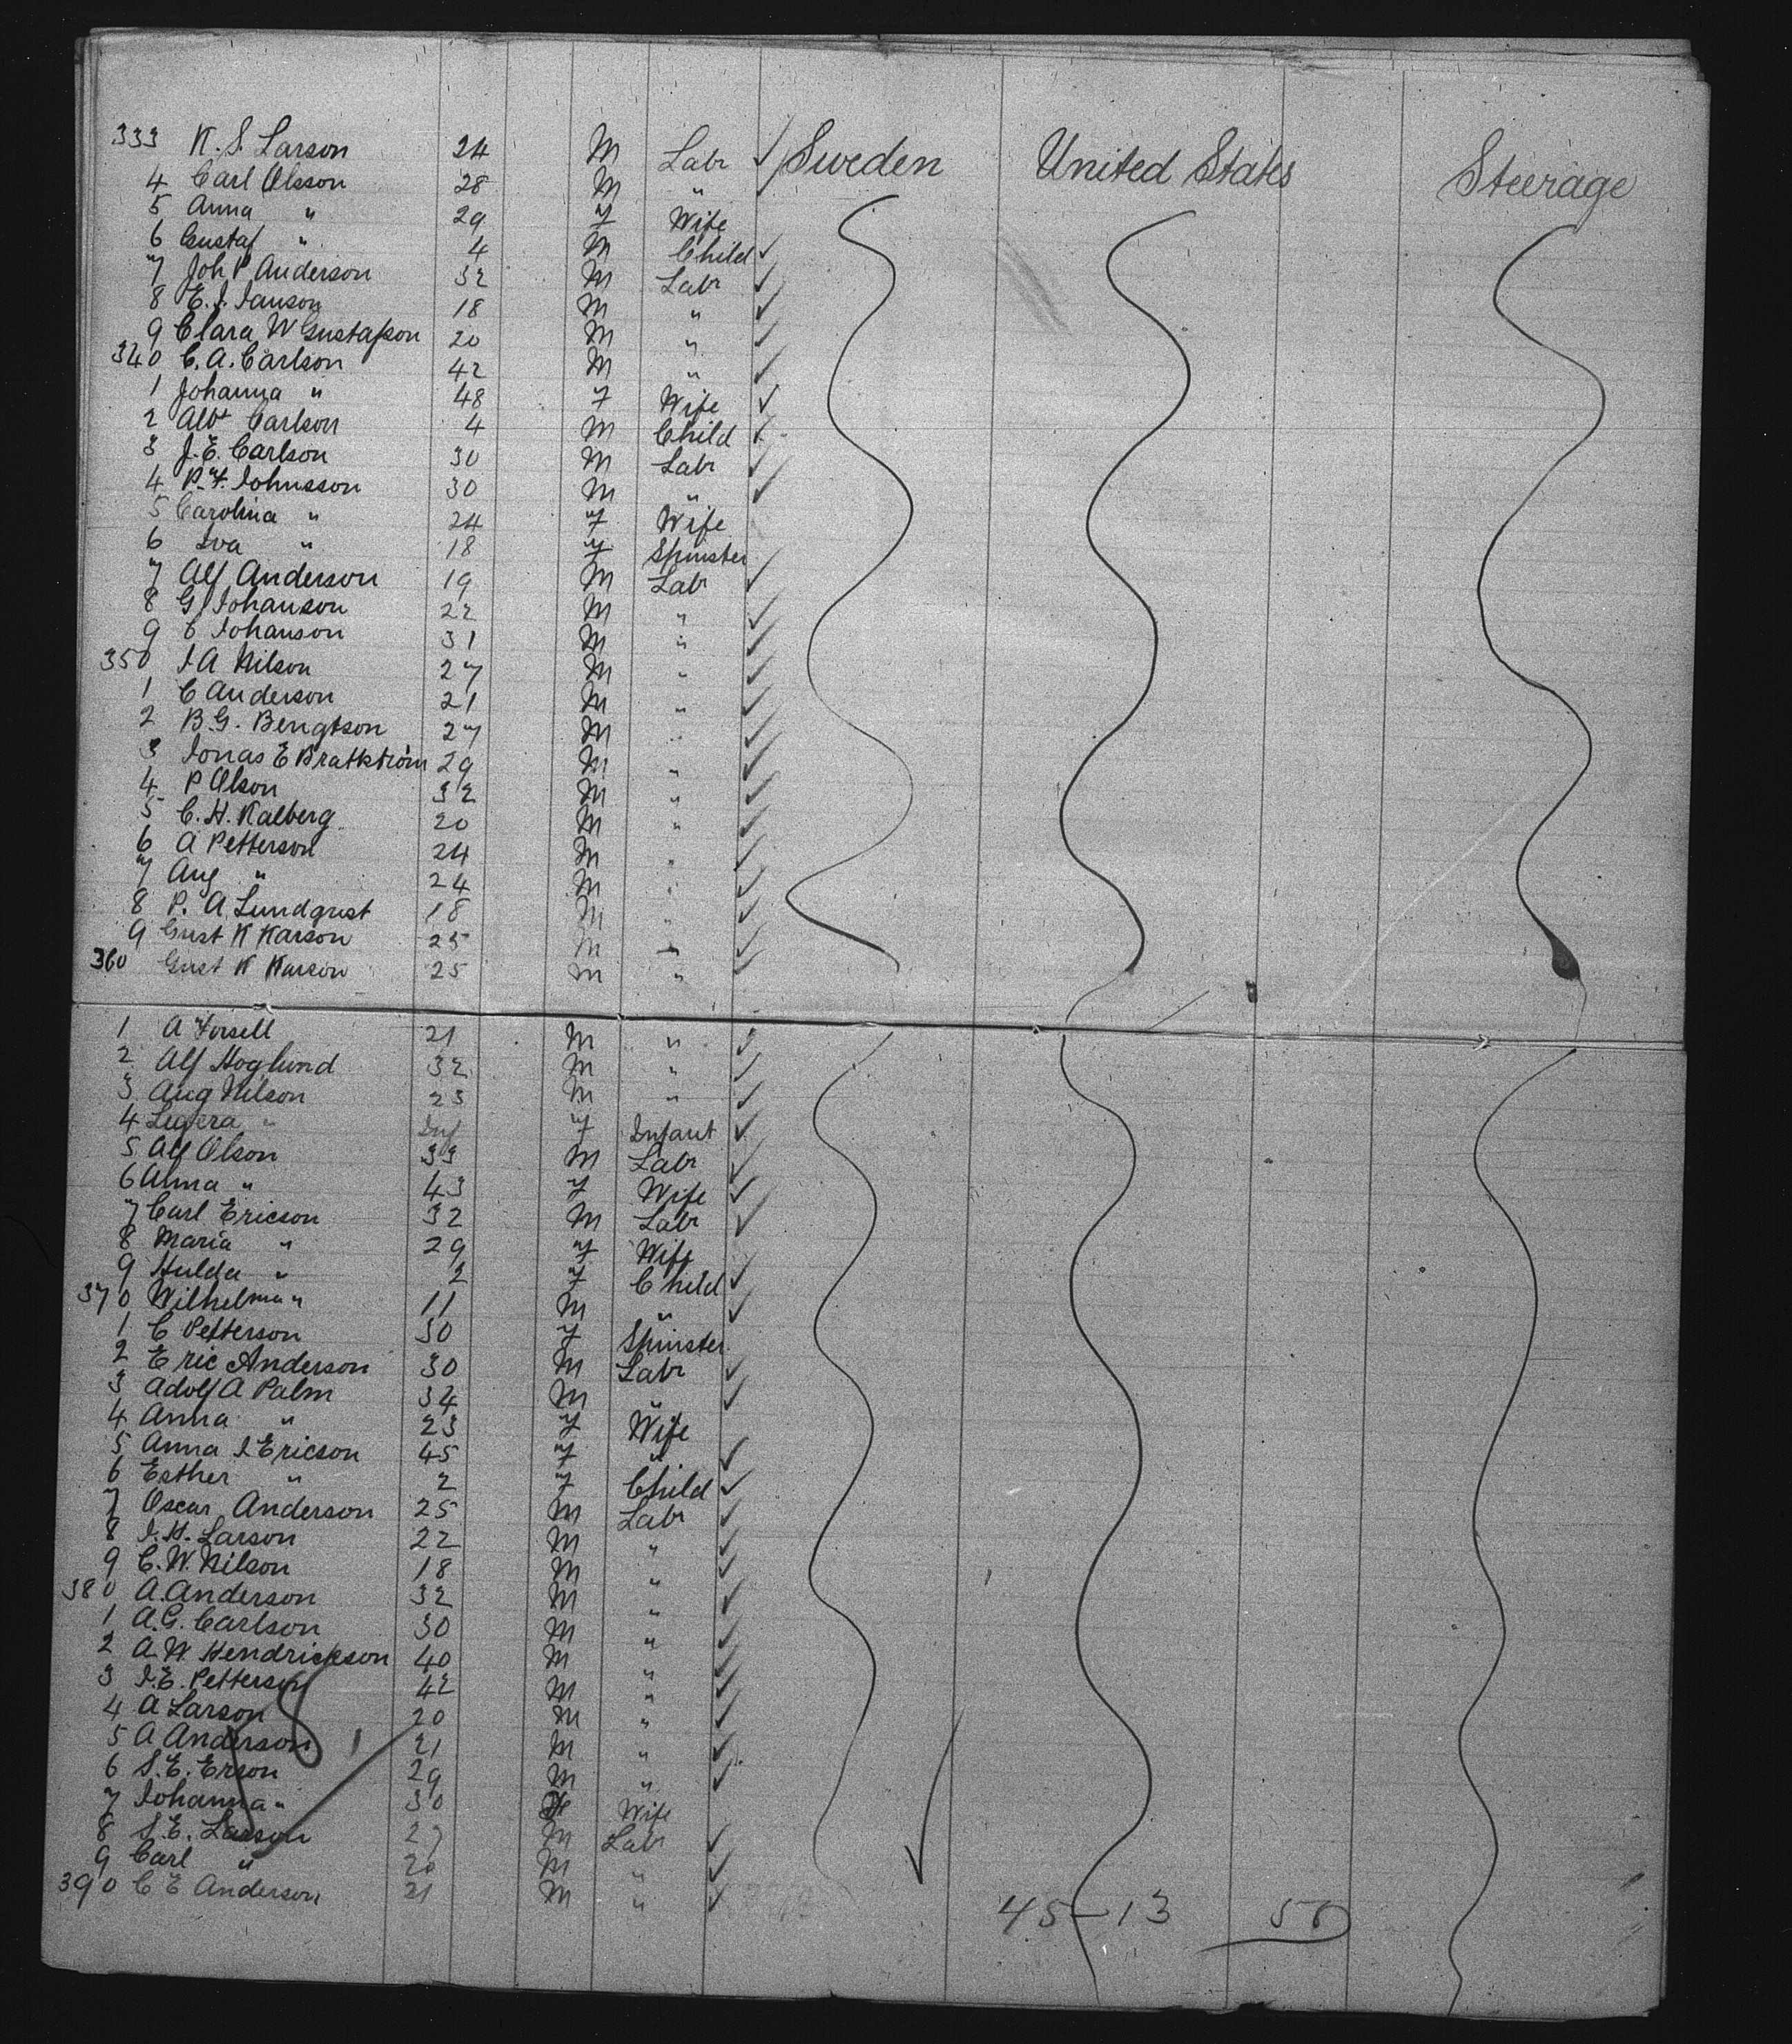 333 K. S. Larson 24 M Labr ✓ Sweden United States Steerage
4 Carl Olsson 28 M "
5 Anna " 29 f Wife
6 Gustaf " 4 M Child ✓
7 Joh P Anderson 32 M Labr ✓
8 E. J. Janson 18 M " ✓
9 Clara W Gustafson 20 M " ✓
340 C. A. Carlson 42 M " ✓
1 Johanna " 48 f Wife ✓
2 Albt Carlson 4 M Child ✓
3 J. E. Carlson 30 M Labr ✓
4 P. F. Johnsson 30 M " ✓
5 Carolina " 24 f Wife
6 Iva " 18 f Spinster
7 Alf Anderson 19 M Labr ✓
8 G J Johanson 22 M " ✓
9 C Johanson 31 M " ✓
350 J A Nilson 27 M " ✓
1 C Anderson 21 M " ✓
2 B. G. Bengtson 27 M " ✓
3 Jonas E Brattström 29 M " ✓
4 P Olson 32 M " ✓
5 C. H. Kalberg 20 M " ✓
6 A Petterson 24 M " ✓
7 Aug " 24 M " ✓
8 P. A Lundqust 18 M " ✓
9 Gust K Karson 25 M " ✓
360 Gust K Karson 25 M "
1 A Forsell 21 M " ✓
2 Alf Hoglund 32 M " ✓
3 Aug Nilson 23 M " ✓
4 " Inf f Infant ✓
5 Alf Olson 33 M Labr ✓
6 Alma " 43 f Wife ✓
7 Carl Ericson 32 M Labr ✓
8 Maria " 29 f Wife
9 Hulda " 2 f Child ✓
370 Wilhelm " 11 M " ✓
1 C Petterson 30 f Spinster
2 Eric Anderson 30 M Labr ✓
3 Adolf A Palm 34 M " ✓
4 Anna " 23 f Wife
5 Anna J Ericson 45 f " ✓
6 Esther " 2 f Child ✓
7 Oscar Anderson 25 M Labr ✓
8 J. H. Larson 22 M " ✓
9 C. W. Nilson 18 M " ✓
380 A. Anderson 32 M " ✓
1 A. G. Carlson 30 M " ✓
2 A. W Hendrickson 40 M " ✓
3 J. E. Petterson 42 M " ✓
4 A Larson 20 M " ✓
5 A Anderson 21 M " ✓
6 S. E. Erson 29 M " ✓
7 Johanna " 30 Wife
8 S. E. Larson 27 M Labr ✓
9 Carl " 20 M " ✓
390 C E Anderson 21 M " ✓
45-13